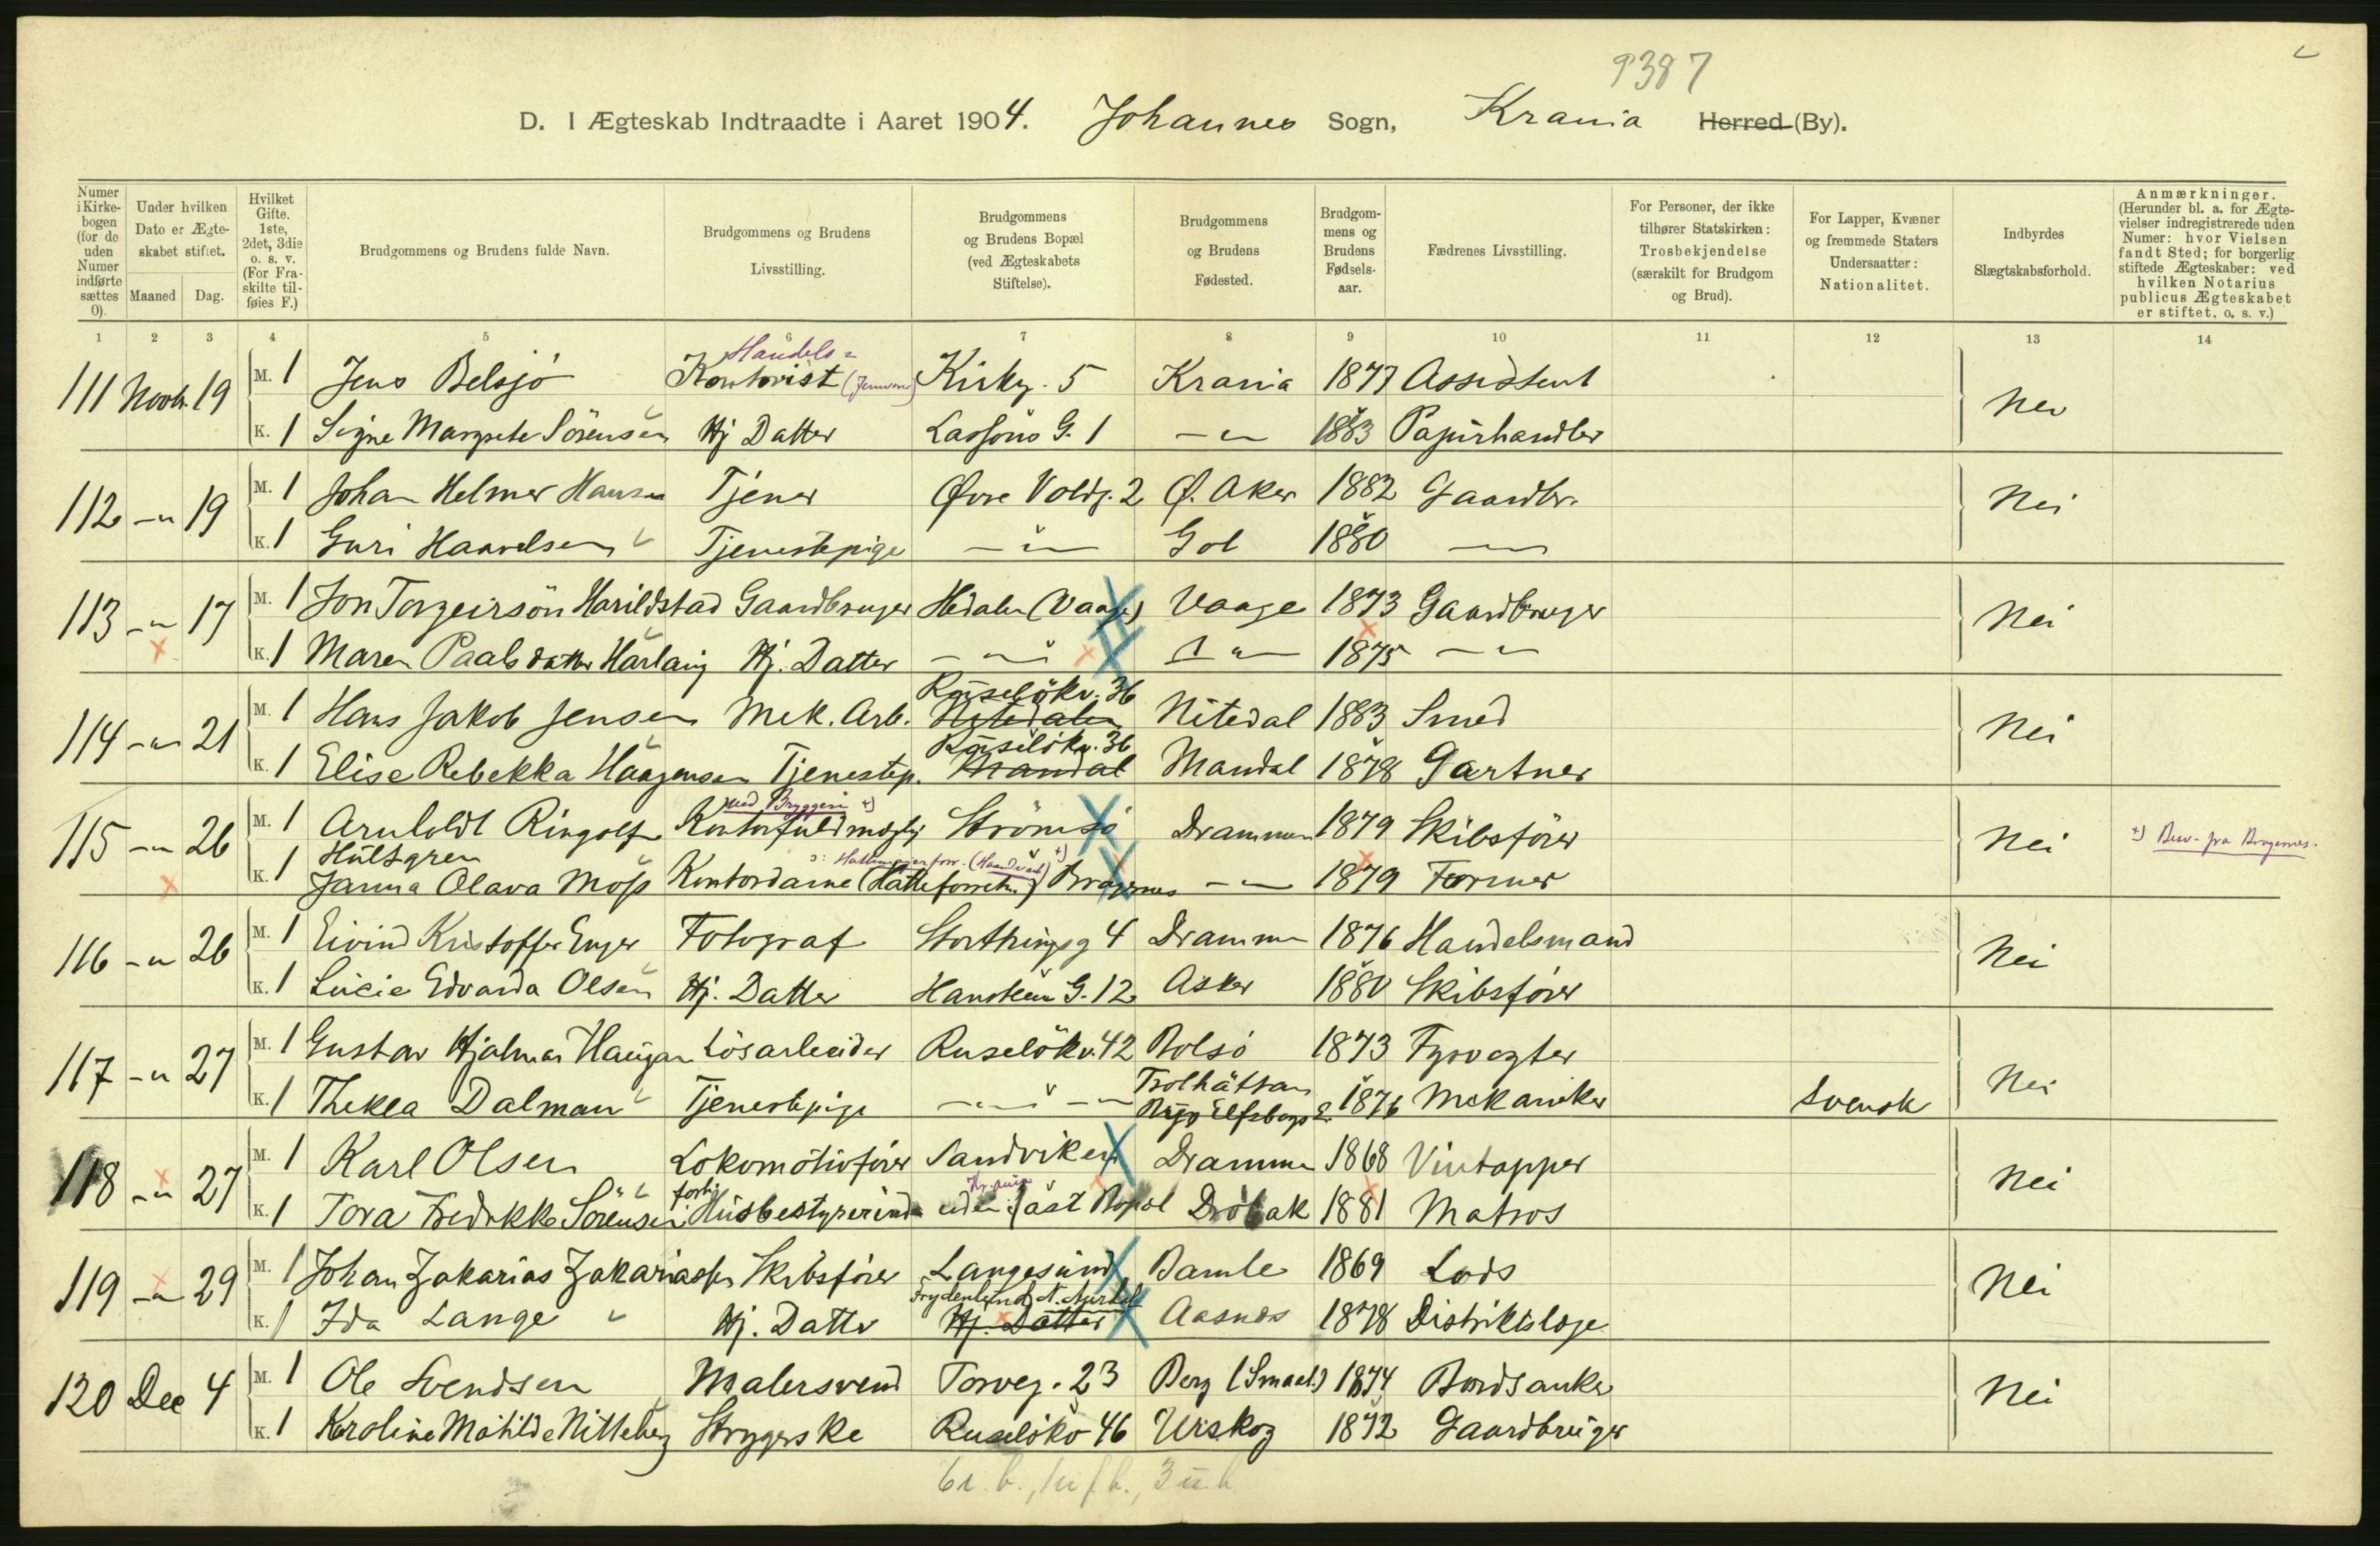 9387
D. I Ægteskab Indtraadte i Aaret 1904. Johannes Sogn, Krania Herred (By).
Numer i Kirkebogen (for de uden Numer indførte sættes 0).
Under hvilken Dato er Ægteskabet stiftet.
Maaned Dag.
Hvilket Gifte. 1ste, 2det, 3die o. s. v. (For Fraskilte tilføies F.)
Brudgommens og Brudens fulde Navn.
Brudgommens og Brudens Livsstilling.
Brudgommens og Brudens Bopæl (ved Ægteskabets Stiftelse).
Brudgommens og Brudens Fødested.
Brudgommens og Brudens Fødselsaar.
Fædrenes Livsstilling.
For Personer, der ikke tilhører Statskirken: Trosbekjendelse (særskilt for Brudgom og Brud).
For Lapper, Kvæner og fremmede Staters Undersaatter: Nationalitet.
Indbyrdes Slægtskabsforhold.
Anmærkninger. (Herunder bl. a. for Ægtevielser indregistrerede uden Numer: hvor Vielsen fandt Sted; for borgerlig stiftede Ægteskaber: ved hvilken Notarius publicus Ægteskabet er stiftet, o. s. v.)
1 2 3 4 5 6 7 8 9 10 11 12 13 14
Handels=
111 Novbr. 19 M. 1 Jens Belsjö Kontorist Kirkg. 5 Krania 1877 Assistent Nei
K. 1 Signe Margrete Sörensen Hj Datter Lassons G. 1 —"— 1883 Papirhandler
112 —"— 19 M. 1 Johan Helmer Hansen Tjener Øvre Voldg. 2 Ø. Aker 1882 Gaardbr. Nei
K. 1 Guri Haavelsen Tjenestepige —"— Gol 1880 —"—
113 —"— 17 M. 1 Jon Torgeirsön Harildstad Gaardbruger Hedalen (Vaage) Vaage 1873 Gaardbruger Nei
K. 1 Maren Paalsdatter Hj. Datter —"— —"— 1875 —"—
Ruselökv. 36
114 —"— 21 M. 1 Hans Jakob Jensen Mek. Arb. Nitedalen Nitedal 1883 Smed Nei
Ruselökv. 36
K. 1 Elise Rebekka Haagensen Tjenestep. Mandal Mandal 1878 Gartner
ved Bryggeri +)
115 —"— 26 M. 1 Arnholdt Ringolf Kontorfuldmægtig Strömsö Drammen 1879 Skibsförer Nei +) Bev. fra Bragernes.
Hultgren
K. 1 Janna Olava Moss Kontordame (Hatteforretn.) Bragernes —"— 1879 Former
116 —"— 26 M. 1 Eivind Kristoffer Enger Fotograf Storthingsg 4 Drammen 1876 Handelsmand Nei
K. 1 Lucie Edvarda Olsen Hj. Datter Hansteens G. 12 Asker 1880 Skibsförer
117 —"— 27 M. 1 Gustav Hjalmar Haugan Lösarbeider Ruselökv. 42 Bolsö 1873 Fyrvogter Nei
Trolhättan
K. 1 Thekla Dalman Tjenestepige —"— 1876 Mekaniker Svensk
118 —"— 27 M. 1 Karl Olsen Lokomotivförer Sandviken Drammen 1868 Vintapper Nei
K. 1 Tora Fredrikke Sörensen Husbestyrerinde uden fast Bopæl Dröbak 1881 Matros
119 —"— 29 M. 1 Johan Zakarias Zakariassen Skibsförer Langesund Bamle 1869 Lods Nei
Frydenlund
K. 1 Ida Lange Hj. Datter Hj. Datter Aasnes 1878 Distriktslæge
120 Dec 4 M. 1 Ole Svendsen Malersvend Torveg. 23 Berg (Smaal.) 1874 Nei
K. 1 Karoline Mathilde Nitteberg Strygerske Ruselökv 46 Urskog 1872 Gaardbruger